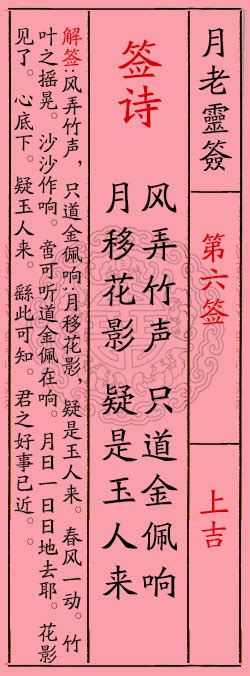 月老靈簽
第六签
上吉
签诗
风弄竹声 只道金佩响
月移花影 疑是玉人来
解签:风弄竹声,只道金佩响:月移花影,疑是玉人来。春风一动。竹
叶之摇晃。沙沙作响。啻可听道金佩在响。月日一日日地去耶。花影
见了。心底下。疑玉人来。繇此可知。君之好事已近。。